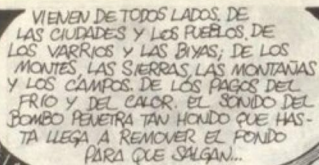 VIENEN DE TODOS LADOS. DE
LAS CIUDADES Y LOS PUEBLOS, DE
LOS VARRIOS Y LAS BIYAS; DE LOS
MONTES, LAS SIERRAS, LAS MONTAÑAS
Y LOS CAMPOS. DE LOS PAGOS DEL
FRIO Y DEL CALOR. EL SONIDO DEL
BOMBO PENETRA TAN HONDO QUE HAS-
TA LLEGA A REMOVER EL FONDO
PARA QUE SALGAN...